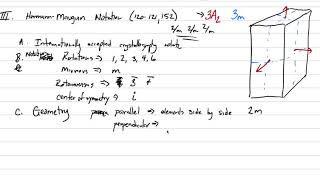 III. Hermann-Mauguin Notation (120-121, 152) → 3A2 3m
2/m 2/m 2/m
A. Internationally accepted crystallographic notate
B. Notation Rotations ⇒ 1, 2, 3, 4, 6
Mirrors ⇒ m
Rotoinversions ⇒ 3̅ 4̅
center of symmetry ⇒ i
C. Geometry parallel ⇒ elements side by side 2m
perpendicular ⇒